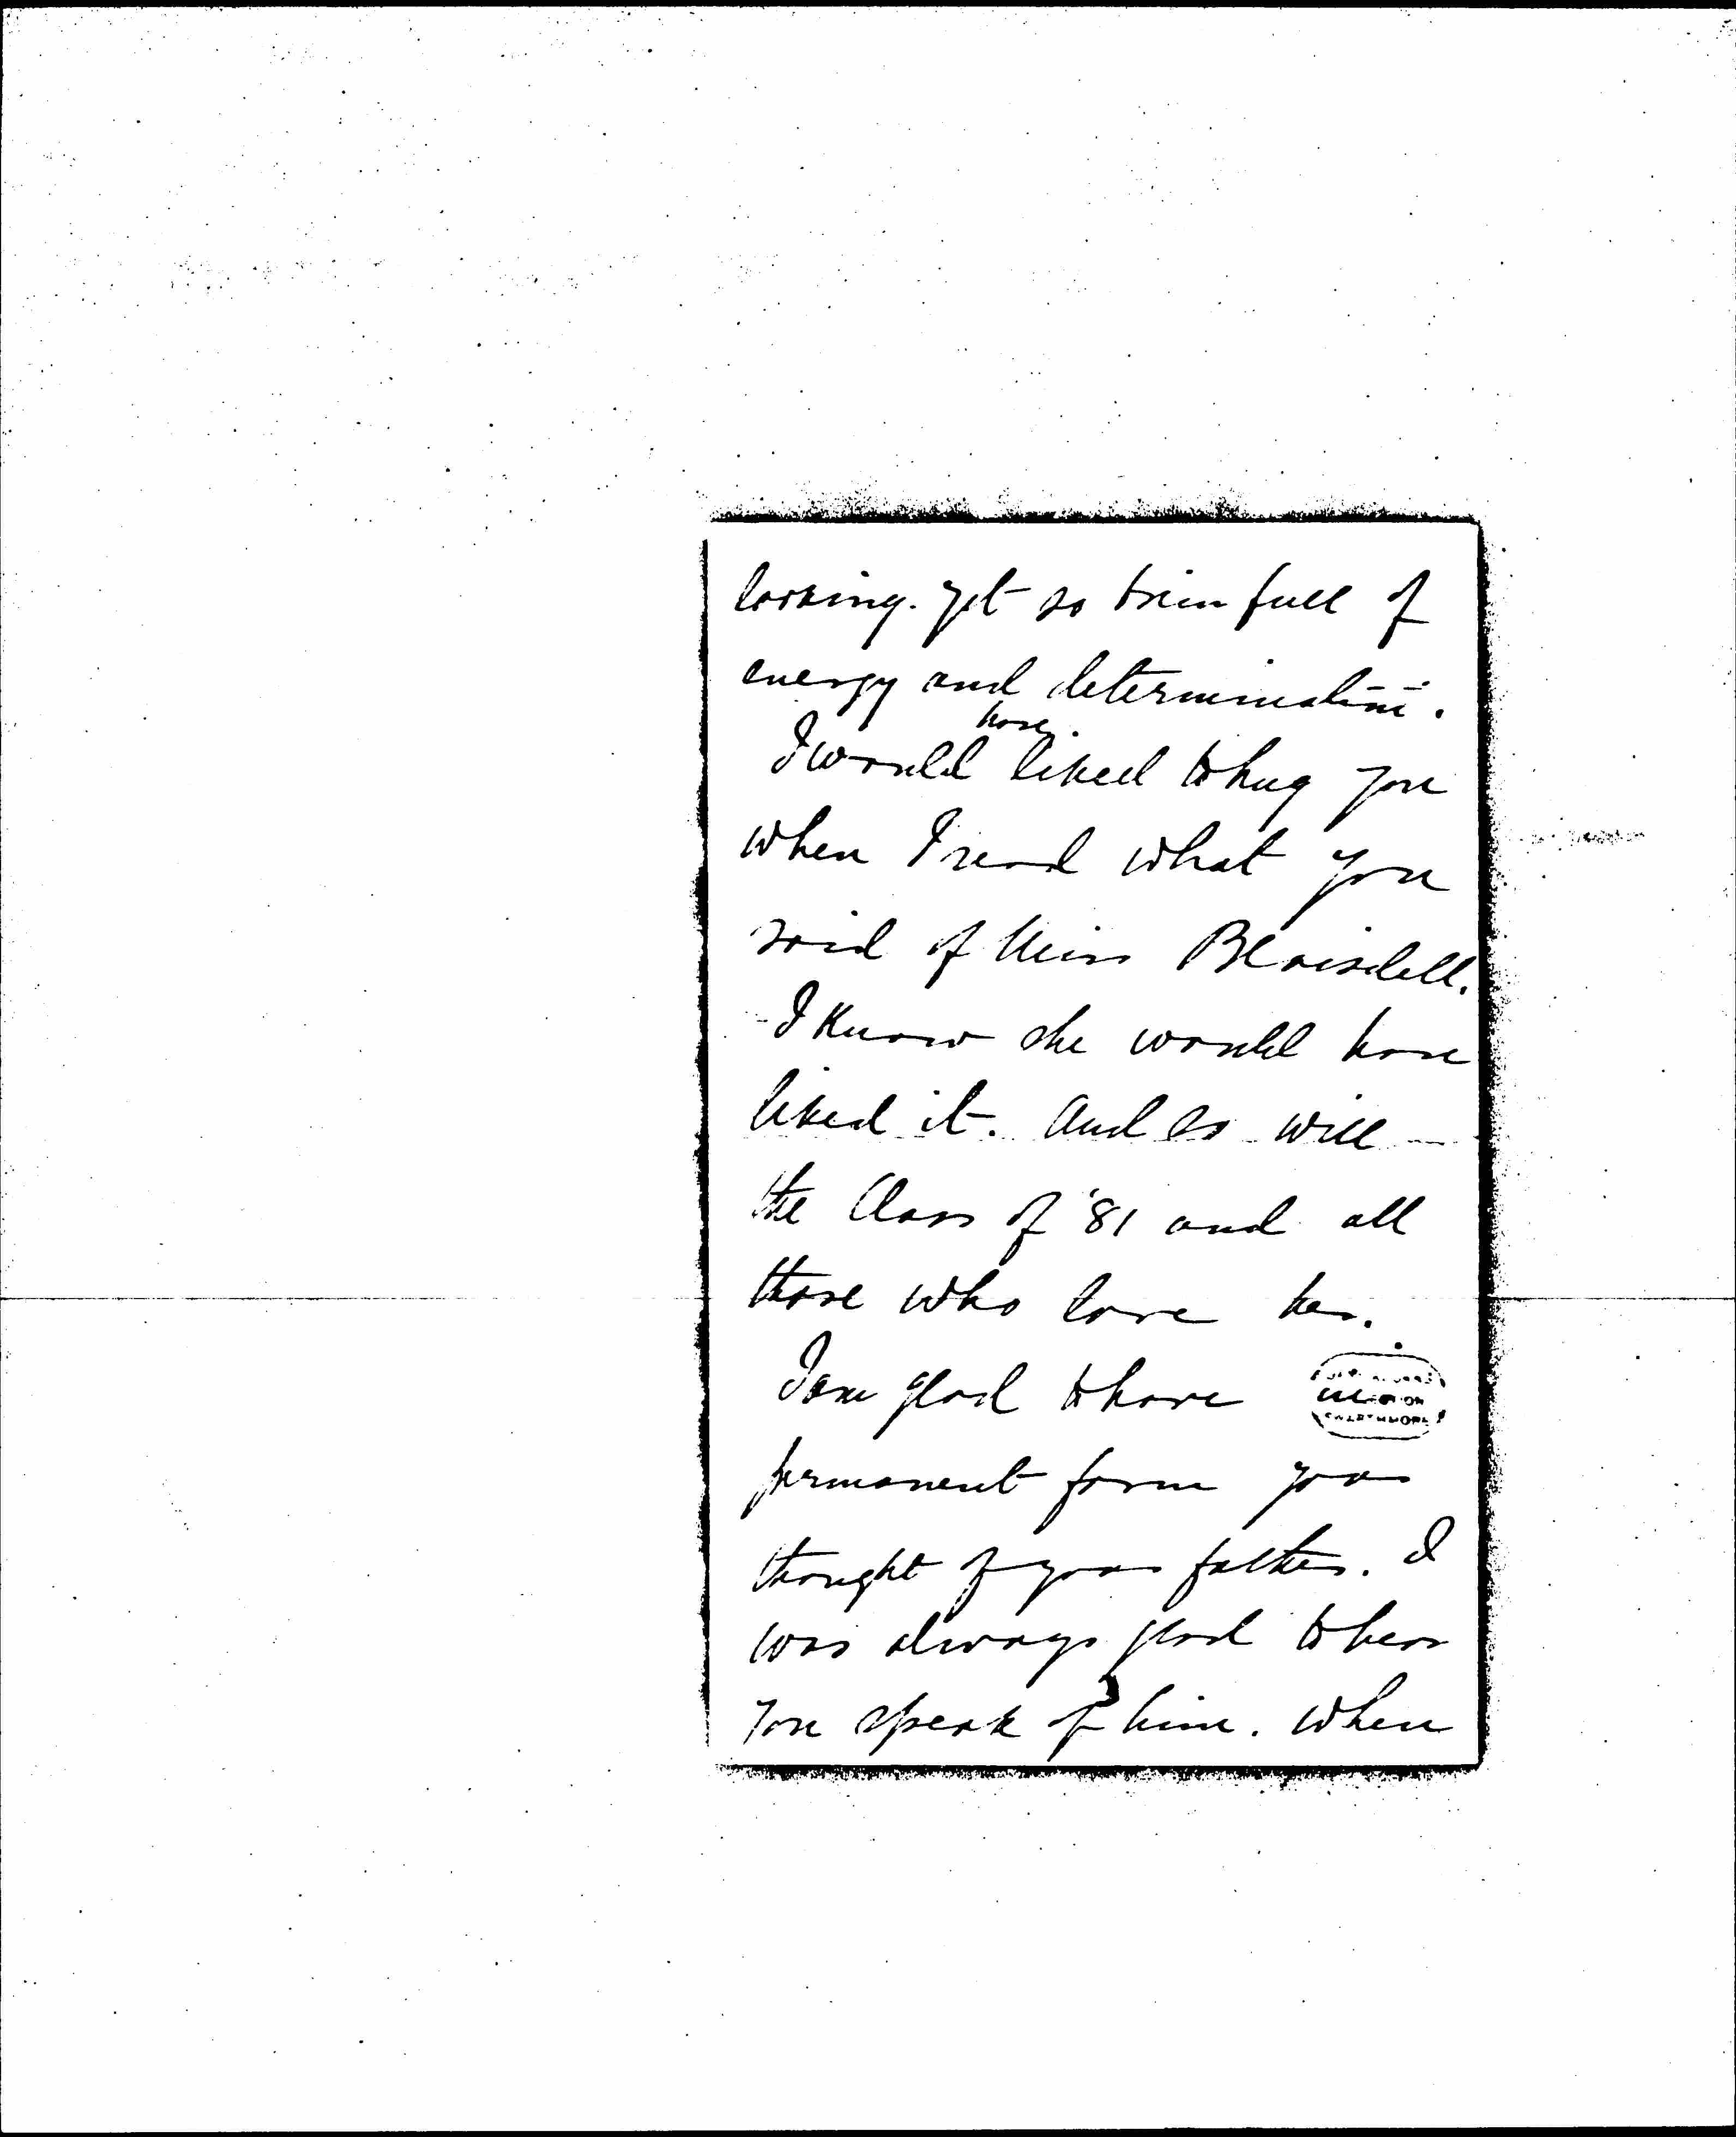 looking. yet so brim full of
energy and determination.
have
I would liked to hug you
when I read what you
said of Miss Blaisdell.
I know she would have
liked it. And so will
the Class of '81 and all
those who love her.
I am glad to have
permanent form your
thought of your father. I
was always glad to hear
you speak of him. When